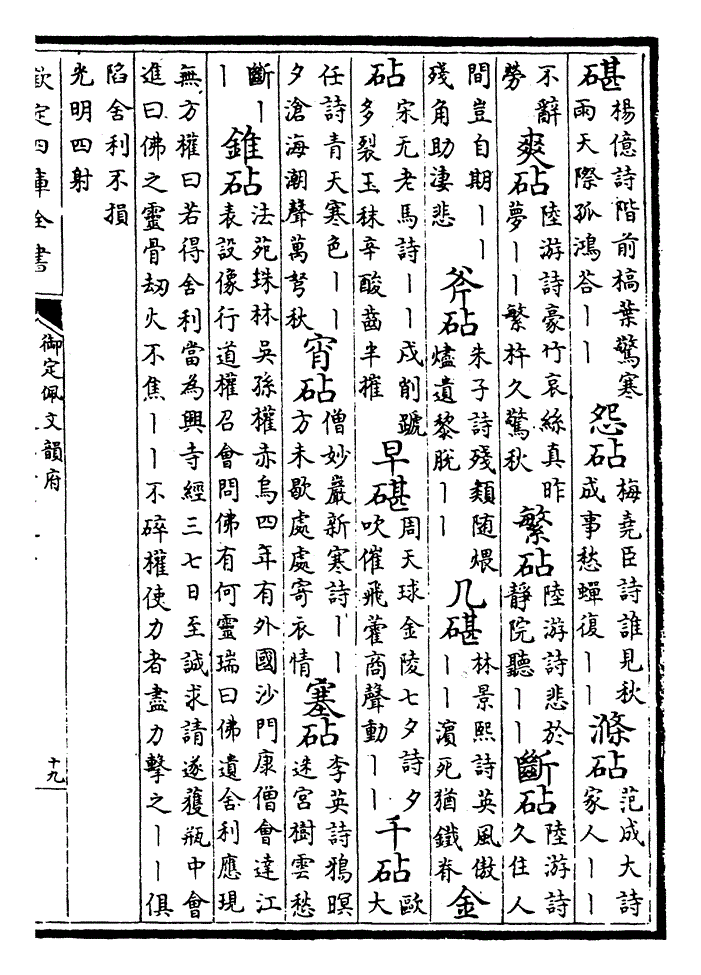 碪 楊億詩階前槁葉驚寒雨天際孤鴻答丨丨 怨砧 梅堯臣詩誰見秋成事愁蟬復丨丨 滌砧 范成大詩家人丨丨
不辭勞 爽砧 陸游詩豪竹哀絲真昨夢丨丨繁杵久驚秋 繁砧 陸游詩悲於靜院聽丨丨 斷砧 陸游詩久住人
間豈自期丨丨殘角助淒悲 斧砧 朱子詩殘類随煨燼遺黎脫丨丨 几碪 林景熙詩英風傲丨丨濵死猶鐵脊 金
砧 宋无老馬詩丨丨戍削蹏多裂玉秣辛酸齒半摧 早碪 周天球金陵七夕詩夕吹催飛藿商聲動丨丨 千砧 歐大
任詩青天寒色丨丨夕滄海潮聲萬弩秋 宵砧 僧妙嚴新寒詩丨丨方未歇處處寄衣情 塞砧 李英詩鴉暝迷宮樹雲愁
斷丨丨 錐砧 法苑珠林吳孫權赤烏四年有外國沙門康僧會達江表設像行道權召會問佛有何靈瑞曰佛遺舍利應現
無方權曰若得舍利當為興寺經三七日至誠求請遂獲瓶中會進曰佛之靈骨刼火不焦丨丨不碎權使力者盡力擊之丨丨俱
陷舍利不損光明四射
欽定四庫全書
御定佩文韻府
十九